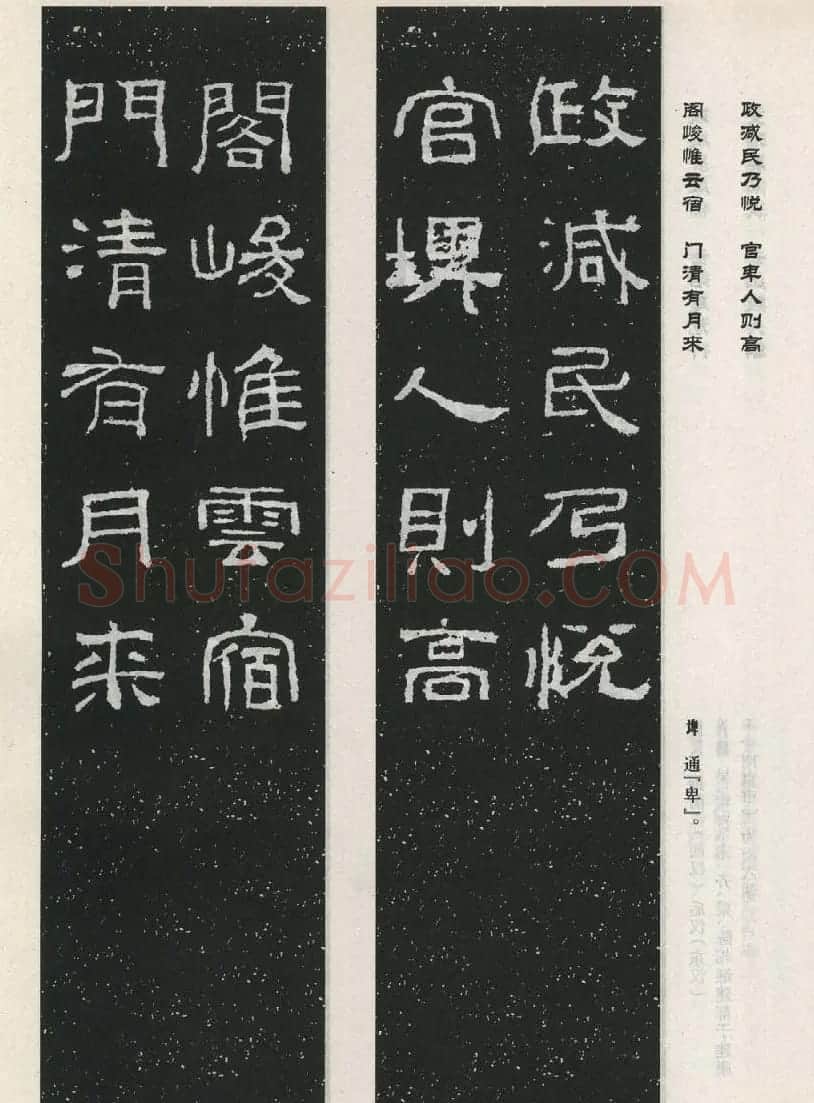 政减民乃悦　官卑人则高
阁峻惟云宿　门清有月来
埤　通「卑」。
政減民乃悦
官埤人則高
閣峻惟雲宿
門清有月来
Shufaziliao.COM